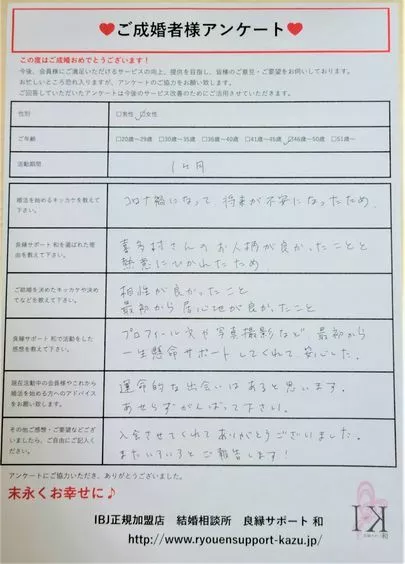 ♥ご成婚者様アンケート♥
この度はご成婚おめでとうございます！
今後、会員様にご満足いただけるサービスの向上、提供を目指し、皆様のご意見・ご要望をお伺いしております。
お忙しいところ恐れ入りますが、アンケートのご協力をお願い致します。
ご回答していただいたアンケートは今後のサービス改善のためにご活用させていただきます。
性別 □男性 ☑女性
ご年齢 □20歳～29歳 □30歳～35歳 □36歳～40歳 □41歳～45歳 ☑46歳～50歳 □51歳～
活動期間 1ヶ月
婚活を始めるキッカケを教えて
下さい。
コロナ禍になって、将来が不安になったため。
良縁サポート和を選ばれた理
由を教えて下さい。
喜多村さんのお人柄が良かったことと
熱意にひかれたため
ご結婚を決めたキッカケや決め
てなどを教えて下さい。
相性が良かったこと
最初から居心地が良かったこと
良縁サポート和で活動をした
感想を教えて下さい。
プロフィール文や写真撮影など最初から
一生懸命サポートしてくれて、安心した。
現在活動中の会員様やこれから
婚活を始める方へのアドバイス
をお願い致します。
運命的な出会いはあると思います。
あせらずがんばって下さい。
その他ご感想・ご要望などござ
いましたら、ご自由にご記入く
ださい。
入会させてくれてありがとうございました。
またいろいろとご報告します！
アンケートにご協力いただき、ありがとうございました。
末永くお幸せに♪
KI
良縁サポート和
IBJ正規加盟店 結婚相談所 良縁サポート 和
http://www.ryouensupport-kazu.jp/